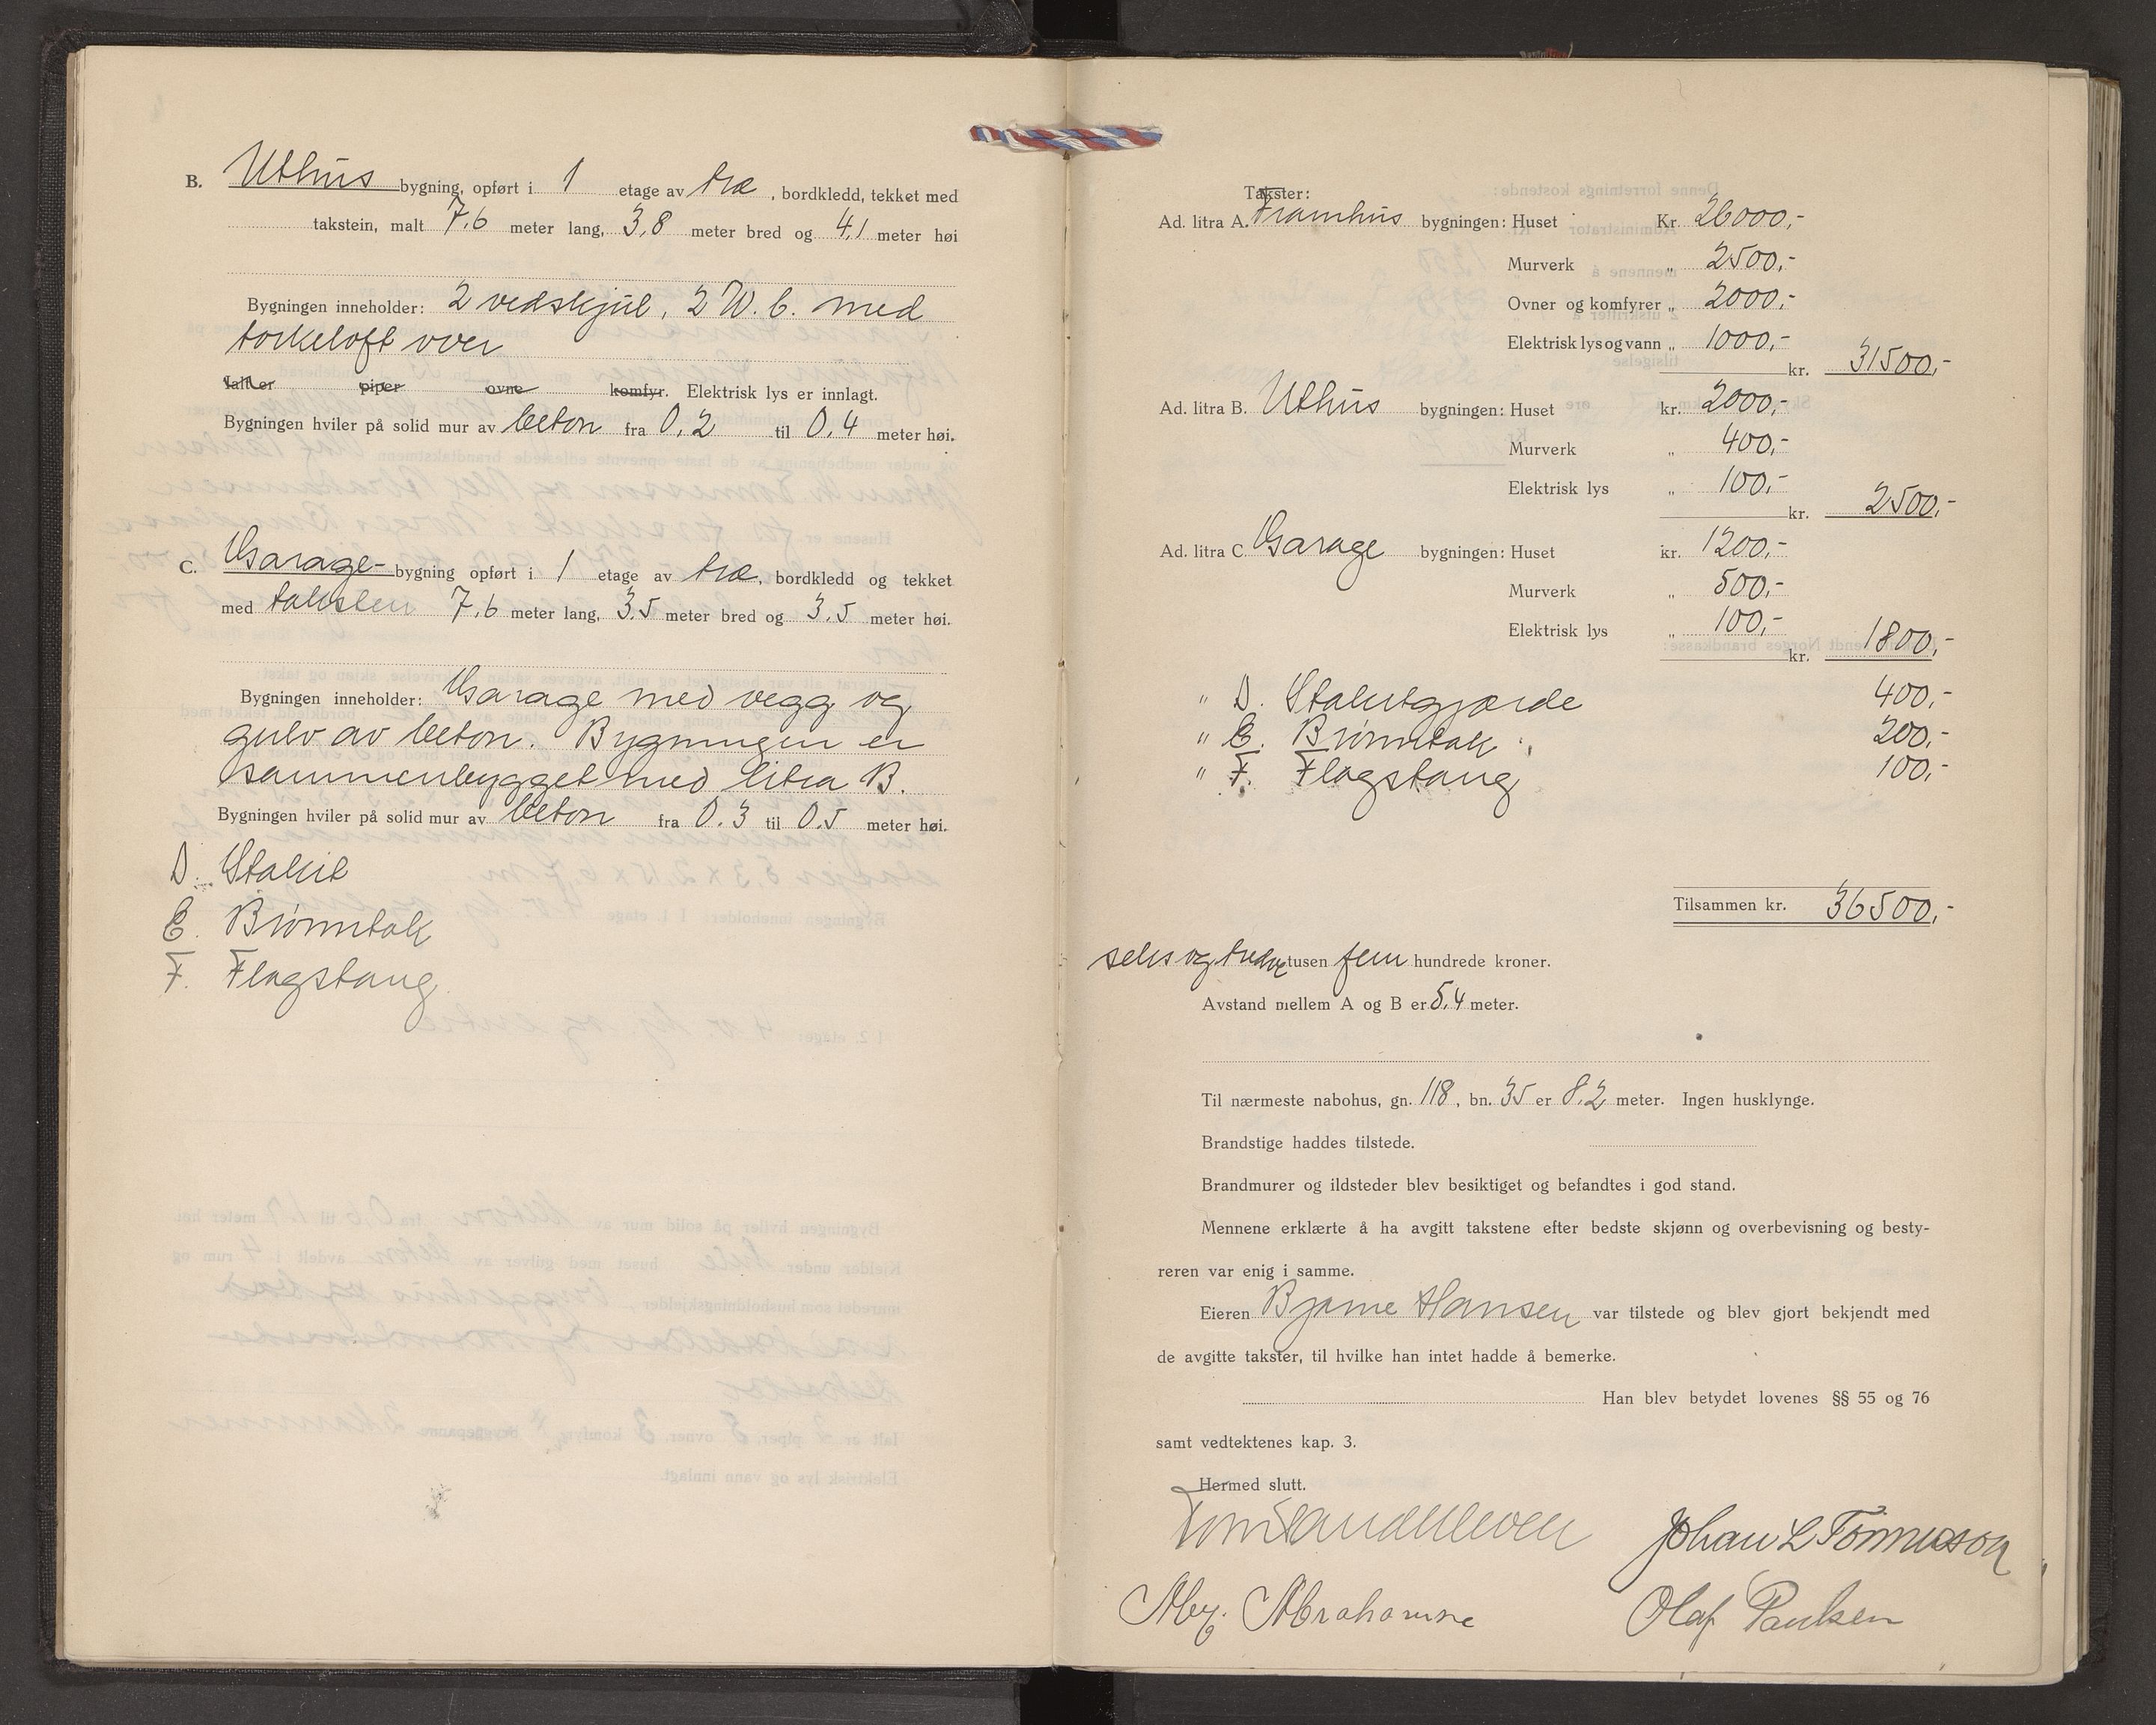 B. Uthus bygning, opført i 1 etage av træ, bordkledd, tekket med
takstein, malt 7.6 meter lang, 3,8 meter bred og 4,1 meter høi
Bygningen inneholder: 2 vedskjul, 2 W.C. med
torkeloft over
Ialt er piper ovne komfyr. Elektrisk lys er innlagt.
Bygningen hviler på solid mur av beton fra 0.2 til 0.4 meter høi.
C. Garage- bygning opført i 1 etage av træ, bordkledd og tekket
med taksten 7.6 meter lang, 3.5 meter bred og 3.5 meter høi.
Bygningen inneholder: Garage med vegg og
gulv av beton. Bygningen er
sammenbygget med litra B.
Bygningen hviler på solid mur av beton fra 0.3 til 0.5 meter høi.
D. Stakit
E. Brønntak
F. Flagstang
Takster:
Ad. litra A. Framhus bygningen: Huset Kr. 26000,-
Murverk „ 2500,-
Ovner og komfyrer „ 2000,-
Elektrisk lys og vann „ 1000,-
kr. 31500,-
Ad. litra B. Uthus bygningen: Huset kr. 2000,-
Murverk „ 400,-
Elektrisk lys „ 100,-
kr. 2500,-
Ad. litra C Garage bygningen: Huset kr. 1200,-
Murverk „ 500,-
Elektrisk lys „ 100,-
kr. 1800,-
" D. Stakitgjærde 400,-
" E. Brønntak 200,-
" F. Flagstang 100,-
Tilsammen kr. 36500,-
seks og tredve tusen fem hundrede kroner.
Avstand mellem A og B er 5.4 meter.
Til nærmeste nabohus, gn. 118, bn. 35 er 8.2 meter. Ingen husklynge.
Brandstige haddes tilstede.
Brandmurer og ildsteder blev besiktiget og befandtes i god stand.
Mennene erklærte å ha avgitt takstene efter bedste skjønn og overbevisning og besty-
reren var enig i samme.
Eieren Bjarne Hansen var tilstede og blev gjort bekjendt med
de avgitte takster, til hvilke han intet hadde å bemerke.
Han blev betydet lovenes §§ 55 og 76
samt vedtektenes kap. 3.
Hermed slutt.
Johan L Tönnesson
Olaf Paulsen